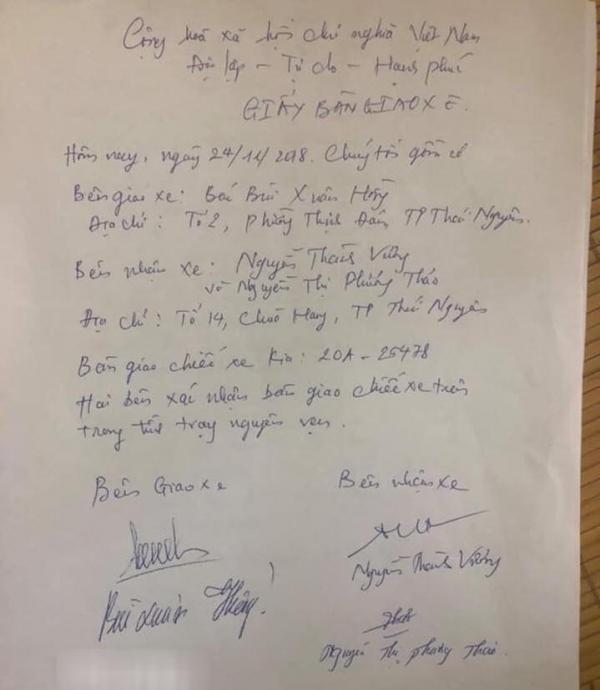 Cộng hoà xã hội chủ nghĩa Việt Nam
Độc lập - Tự do - Hạnh phúc
GIẤY BÀN GIAO XE.
Hôm nay, ngày 24/11/2018. Chúng tôi gồm có
Bên giao xe: Bùi Xuân
Địa chỉ: Tổ 2, phường Thịnh Đán, TP Thái Nguyên.
Bên nhận xe: Nguyễn Thành
và Nguyễn Thị Phương Thảo
Địa chỉ: Tổ 14, Chùa Hang, TP Thái Nguyên
Bàn giao chiếc xe Kia: 20A - 25478
Hai bên xác nhận bàn giao chiếc xe trên
trong tình trạng nguyên vẹn.
Bên Giao xe
Bên nhận xe
Nguyễn Thành
Bùi Xuân
Nguyễn Thị phương Thảo.